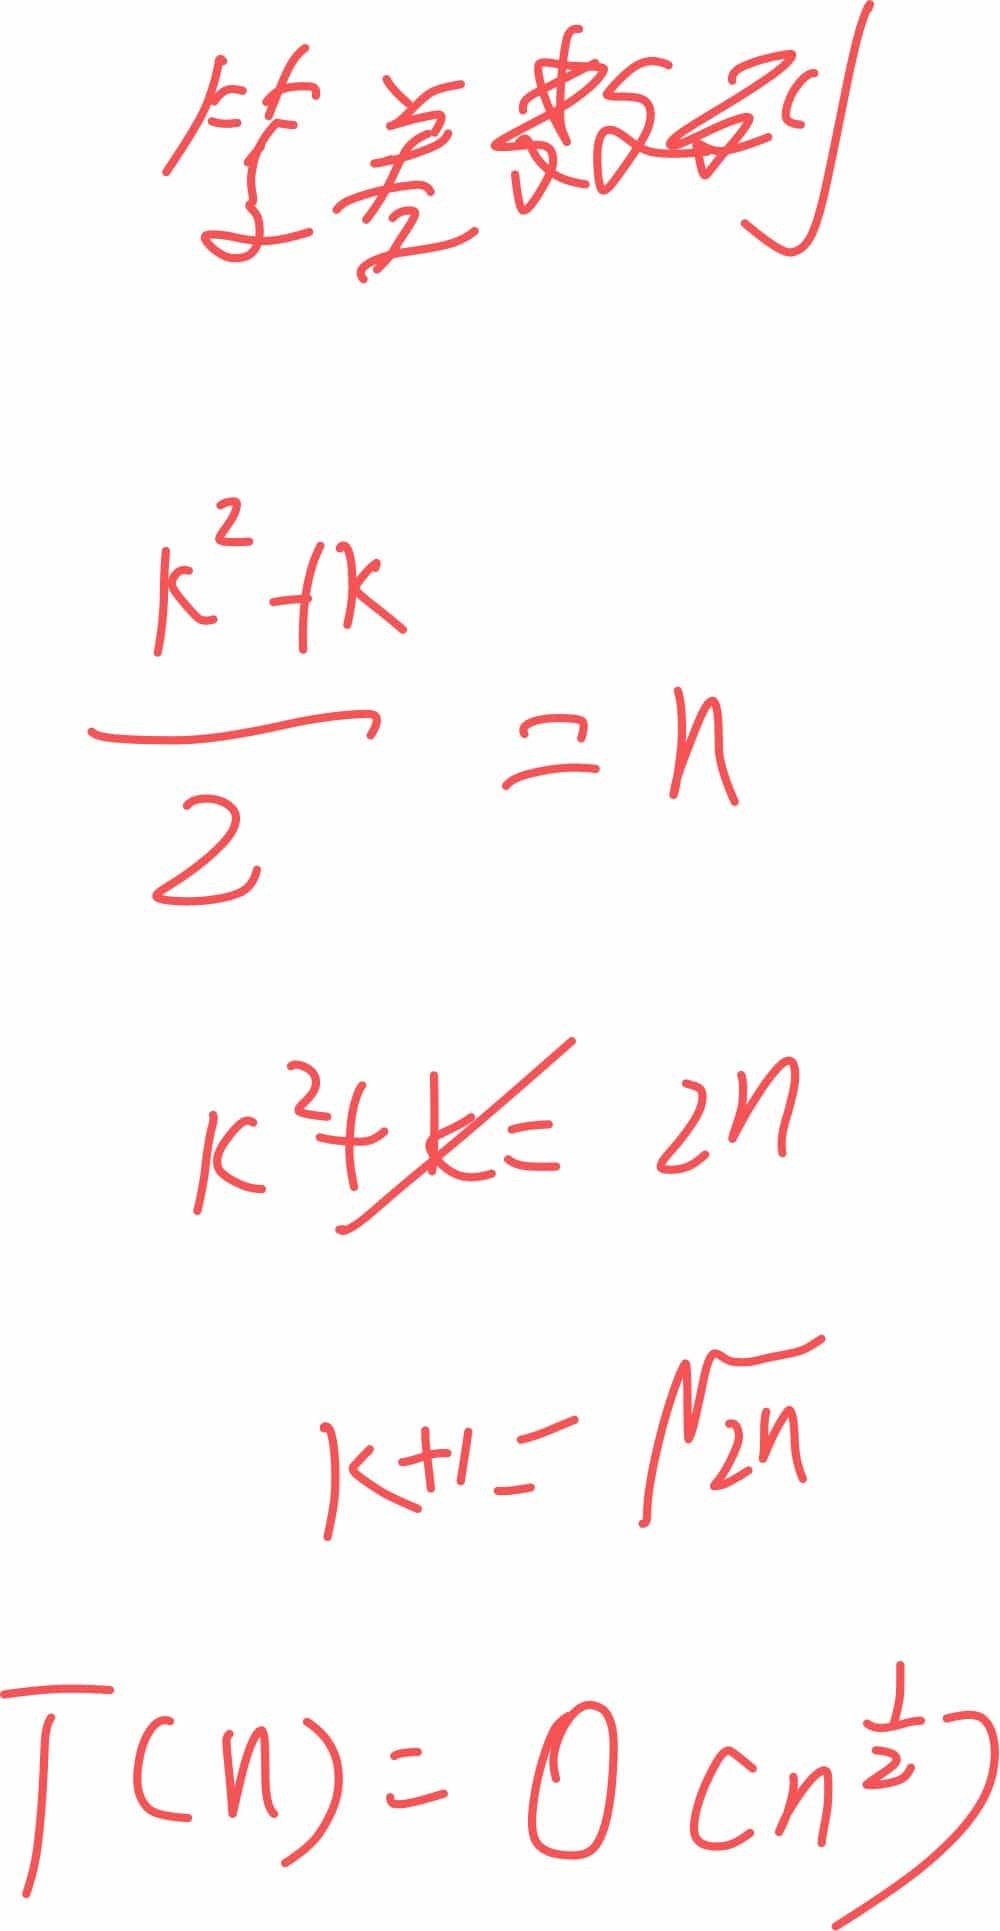 等差数列
k²+k
—— = n
2
k²+k= 2n
k+1= √2n
T(n)= O(n^½)